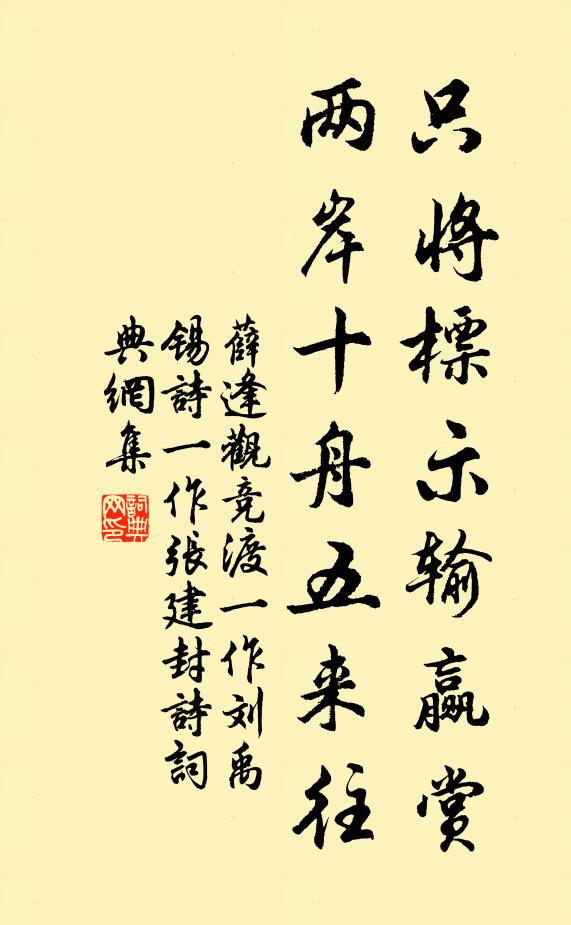 只將標示输赢赏
两岸十舟五来往
薛逢觀竞渡一作刘禹
锡詩一作張建封詩詞
典網集
詞典
网印